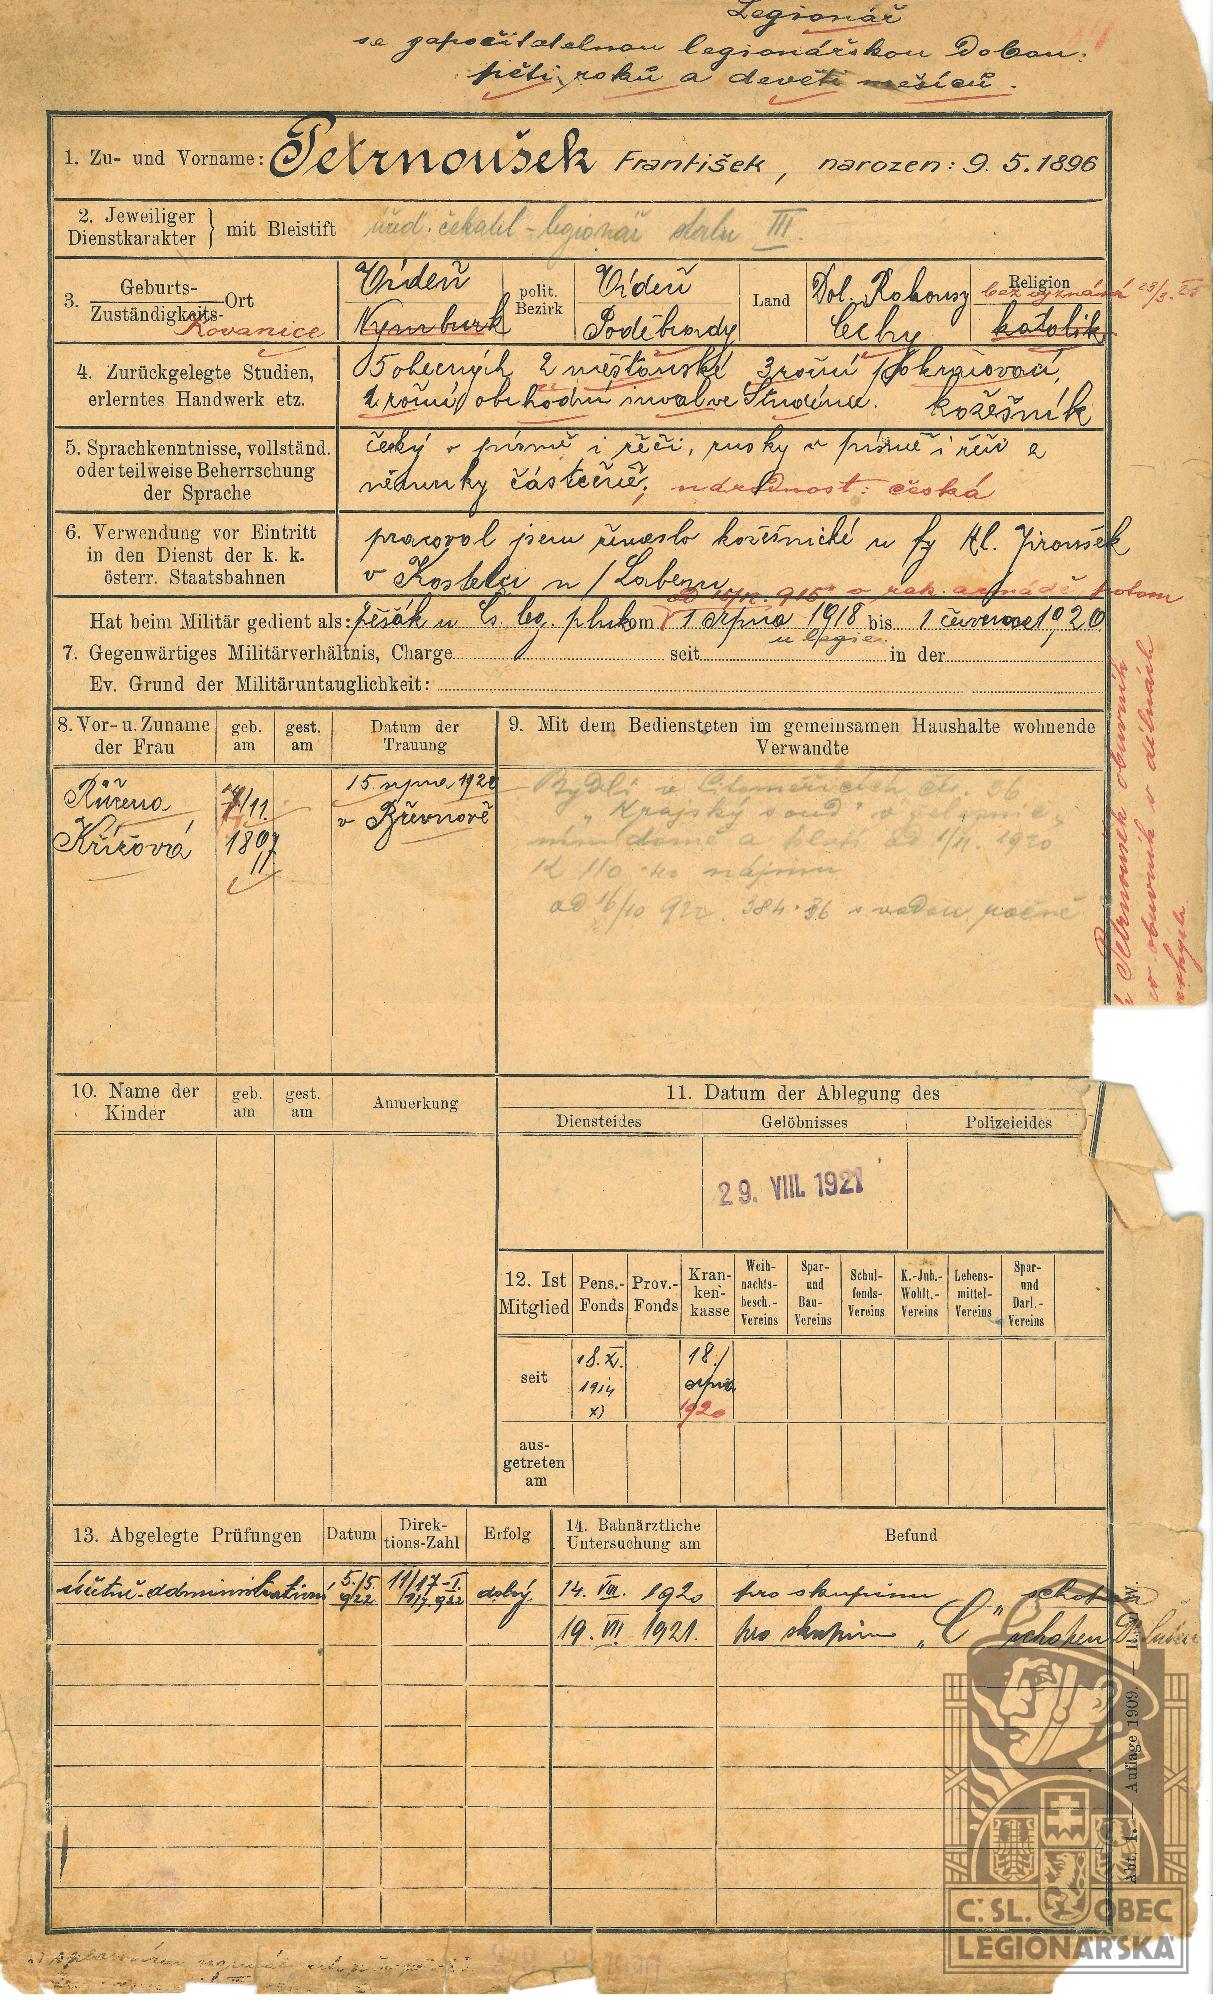 Legionář
se započitatelnou legionářskou dobou:
pěti roků a devěti měsíců.
1. Zu- und Vorname: Petrnoušek František, narozen: 9. 5. 1896
2. Jeweiliger Dienstkarakter } mit Bleistift úřed. čekatel - legionář statu III.
3. Geburts- Zuständigkeits- Ort Vídeň polit. Bezirk Vídeň Land Dol. Rakousy Religion bez vyznání
Rovanice Nymburk Poděbrady Čechy katolík
4. Zurückgelegte Studien, erlerntes Handwerk etz.
5 obecných 2 měšťanské 3 roční pokračovací,
1 roční obchodní kožešník
5. Sprachkenntnisse, vollständ. oder teilweise Beherrschung der Sprache
český v písmě i řeči, rusky v písmě i řeči a
německy částečně, národnost: česká
6. Verwendung vor Eintritt in den Dienst der k. k. österr. Staatsbahnen
pracoval jsem řemeslo kožešnické u fy Al. Jiroušek
v Kostelci n/Labem
v rak. armádě potom
Hat beim Militär gedient als: pěšák u čs. leg. pluk vom 1 srpna 1918 bis 1 července 1920
u legie
7. Gegenwärtiges Militärverhältnis, Charge seit in der
Ev. Grund der Militäruntauglichkeit:
8. Vor- u. Zuname der Frau
geb. am
gest. am
Datum der Trauung
9. Mit dem Bediensteten im gemeinsamen Haushalte wohnende Verwandte
Růžena 7/11 15. srpna 1920
Křížová 1897 v Břevnově
Bydlí v Litoměřicích čís. 36
„Krajský soud" v
domě a platí od 1/11. 1920
K 110·40 nájmu
384·36 s vodou ročně
10. Name der Kinder
geb. am
gest. am
Anmerkung
11. Datum der Ablegung des
Diensteides
Gelöbnisses
Polizeieides
29. VIII. 1921
12. Ist Mitglied
Pens.-Fonds
Prov.-Fonds
Kran-ken-kasse
Weih-nachts-besch.-Vereins
Spar- und Bau-Vereins
Schul-fonds-Vereins
K.-Jub.-Wohlt.-Vereins
Lebens-mittel-Vereins
Spar- und Darl.-Vereins
seit 18. X. 1914 x) 18./ srpna 1920
aus-getreten am
13. Abgelegte Prüfungen
Datum
Direk-tions-Zahl
Erfolg
14. Bahnärztliche Untersuchung am
Befund
účetně-administrativní 5./5. 922 11/17-I. dobrý
14. VIII. 1920 pro skupinu schopen
19. VII 1921. pro skupinu „C" schopen
Abt. 1. — Auflage 1909. —
Č. SL. OBEC
LEGIONÁŘSKÁ